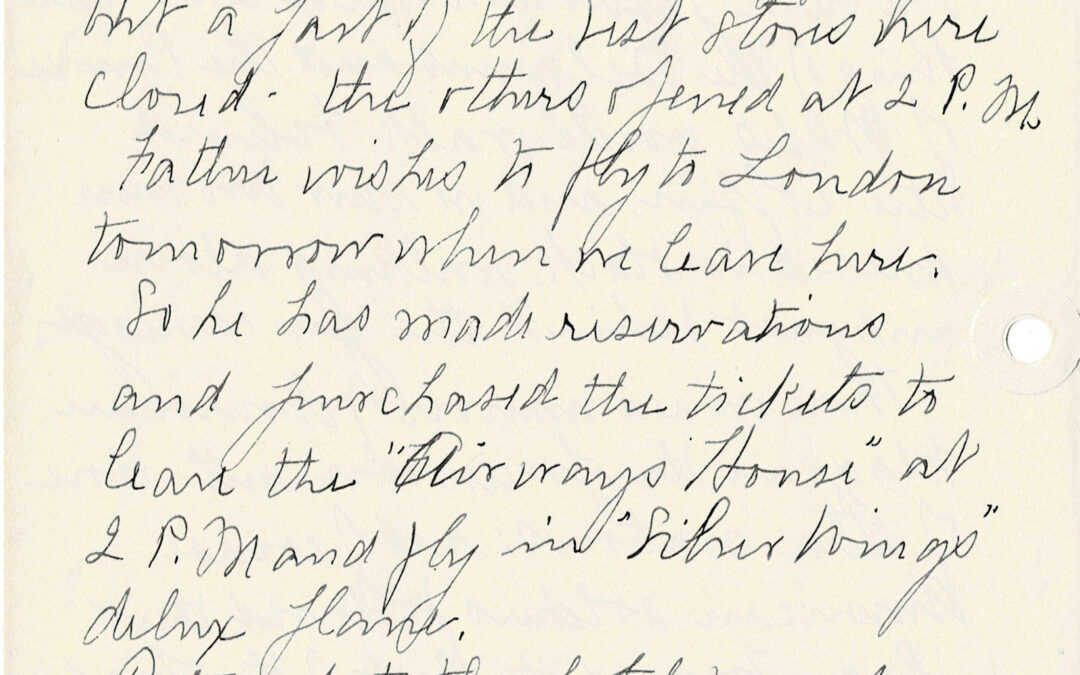 but a part of the best stores were
closed - the others opened at 2 P.M.
Father wishes to fly to London
tomorrow when we leave here.
So he has made reservations
and purchased the tickets to
leave the "Airways House" at
2 P.M and fly in "Silver Wings"
delux plane.